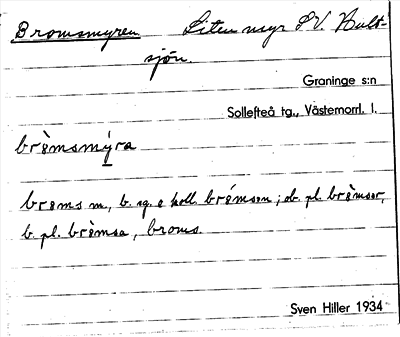 Bromsmyren Liten myr S.V. Bult-
sjön.
Graninge s:n
Sollefteå tg., Västernorrl. l.
bròmsmy̆ra
broms m., b. sg. o koll. brómsen; ob. pl. bròmser,
b. pl. bròmsa, broms.
Sven Hiller 1934